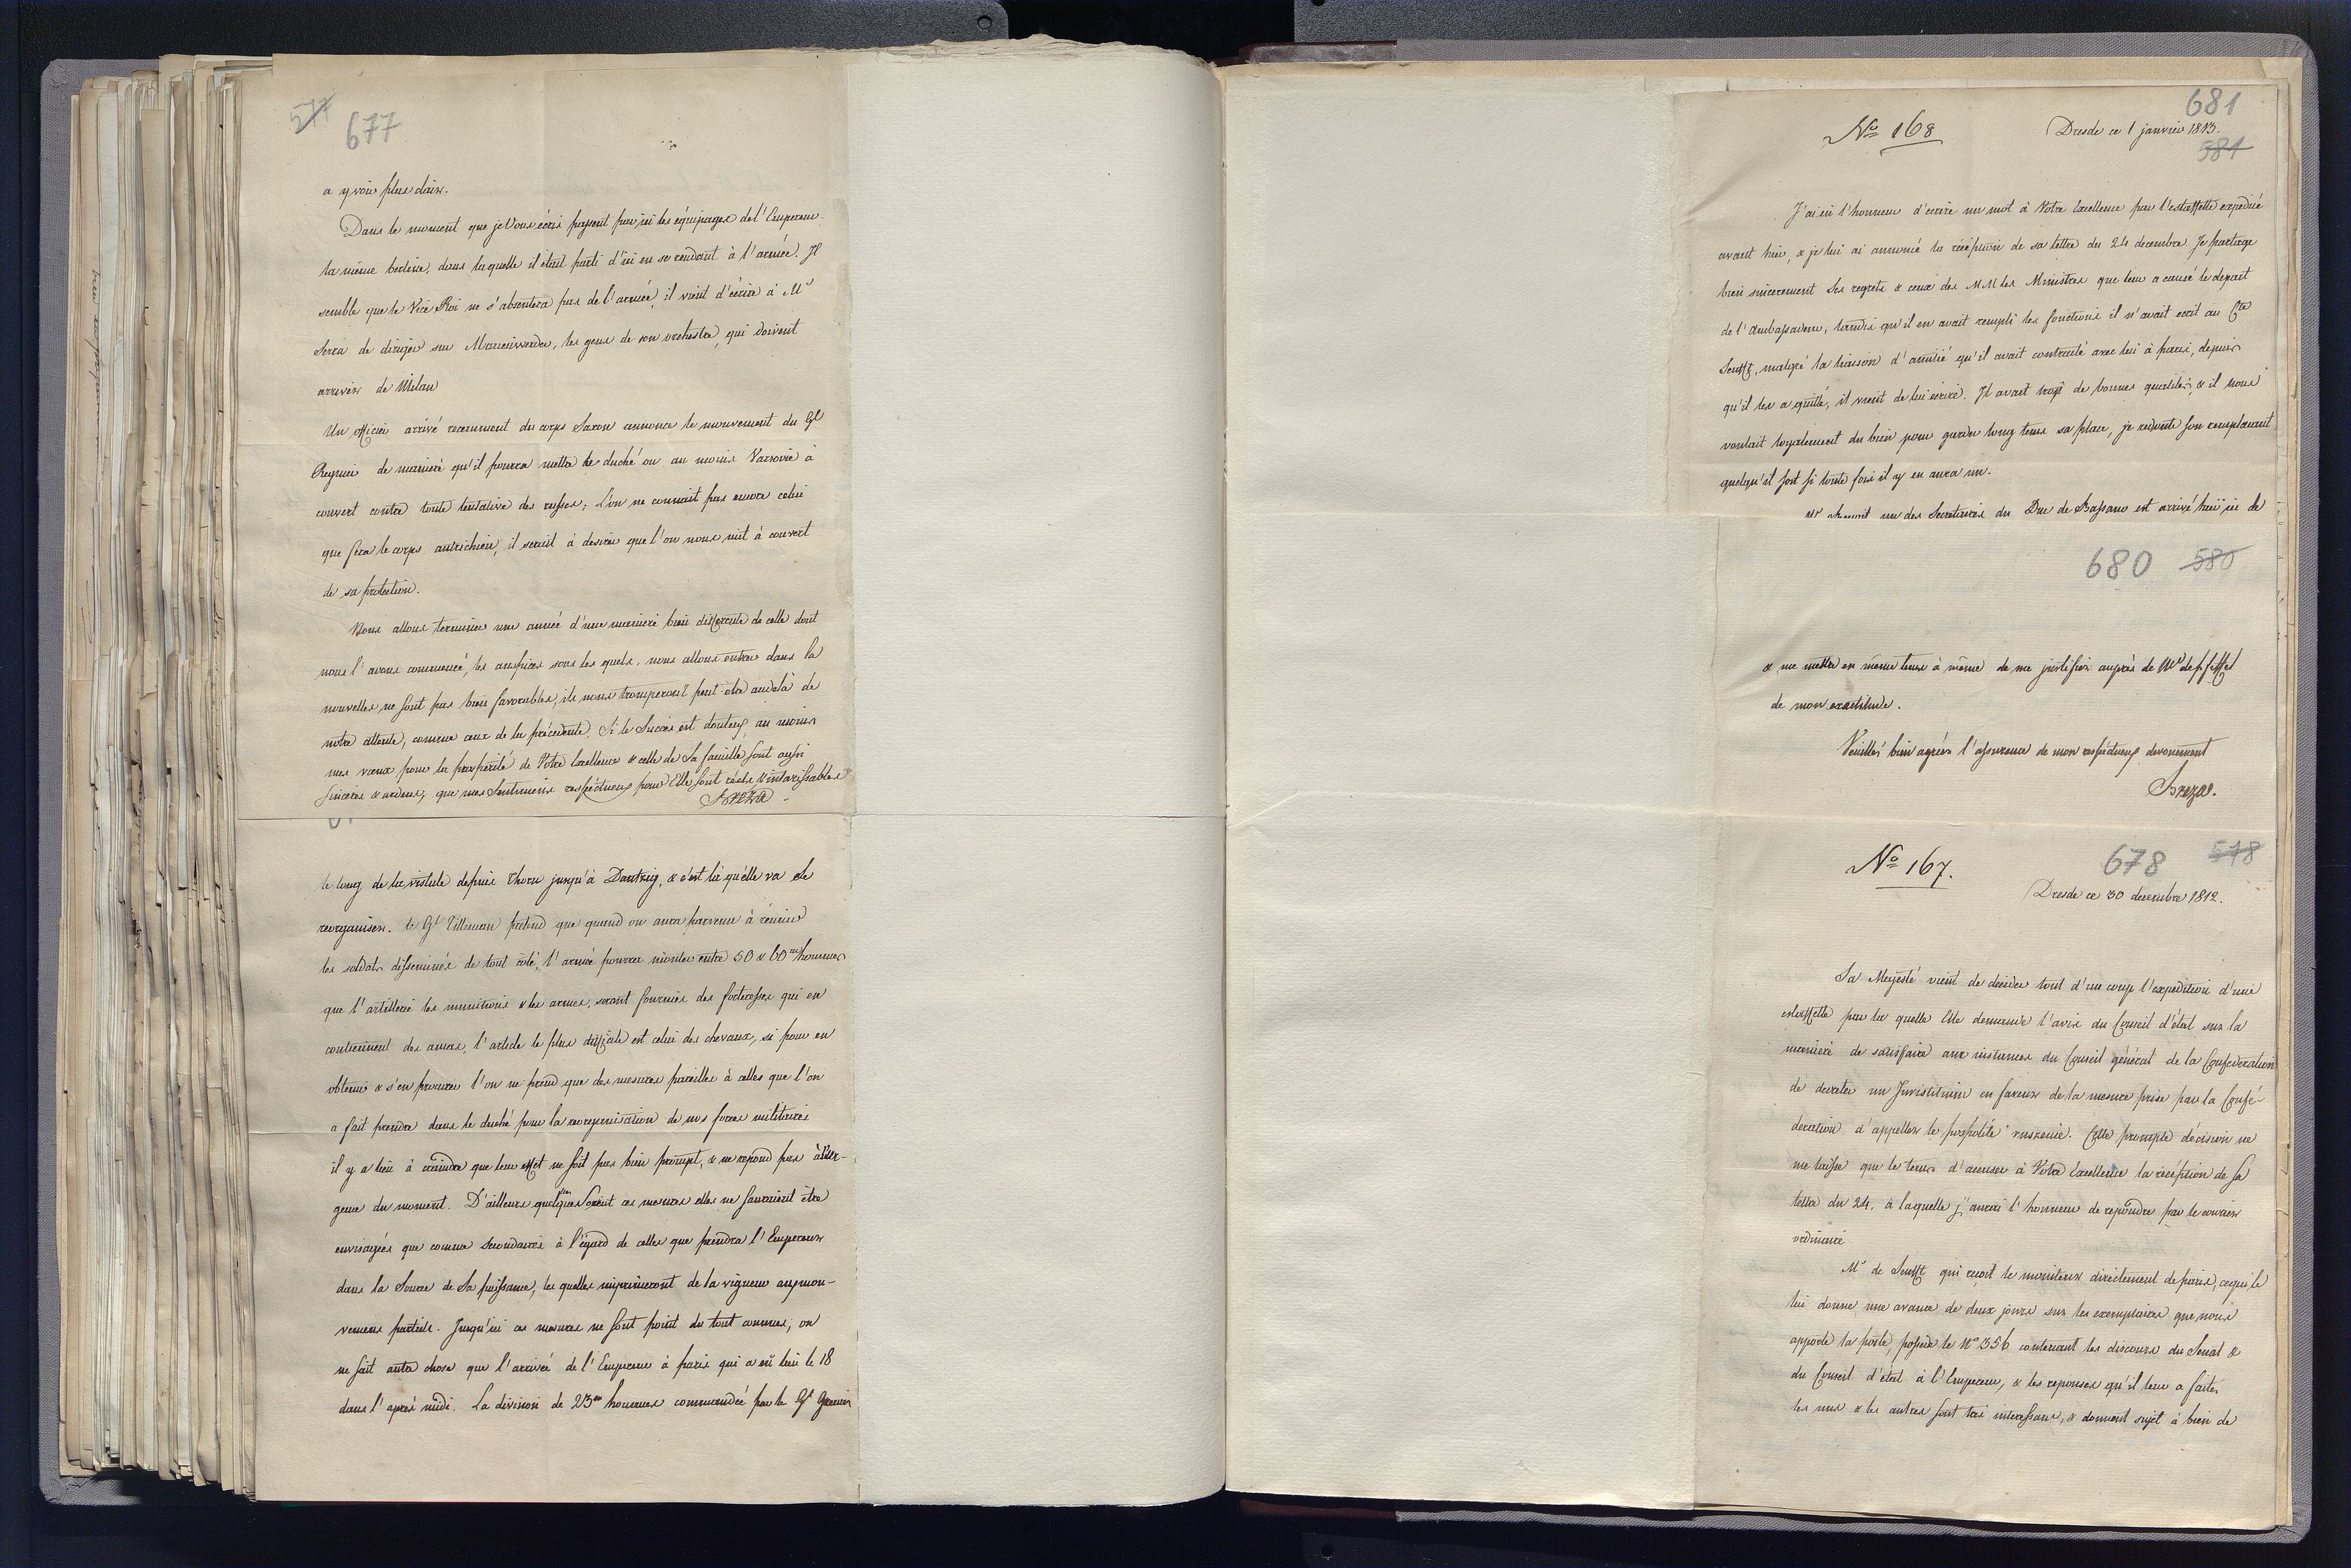 577 677
a y voir plus clair.
Dans le moment que je Vous écris passent par ici les équipages de l'Empereur.
la même berline, dans laquelle il était parti d'ici en se rendant à l'armée. Il
semble que le Vice Roi ne s'absentera pas de l'armée, il vient d'écrire à Mr
Serra de diriger sur Marienwerder, les gens de son orchestre, qui doivent
arriver de Milan
Un officier arrivé recemment du corps Saxon annonce le mouvement du Gl
Reynier de manière qu'il pourra mettre le duché ou au moins Varsovie à
couvert contre toute tentative des russes; L'on ne connait pas encore celui
que fera le corps autrichien, il serait à desirer que l'on nous mit à couvert
de sa protection.
Nous allons terminer une année d'une manière bien differente de celle dont
nous l'avons commencé, les auspices sous les quels nous allons entrer dans la
nouvelle ne sont pas bien favorables, ils nous tromperont peut être audelà de
notre attente, comme ceux de la précédente. Si le Succès est douteux au moins
mes vœux pour la prosperité de Votre Excellence & celle de Sa famille sont aussi
sinceres & ardens, que mes Sentimens respéctueux pour Elle sont réels & intarissables
Breza
le long de la vistule depuis Thorn jusqu'à Dantzig, & c'est là qu'elle va se
reorganiser. le Gl Tilleman prétend que quand on aura parvenu à réunir
les soldats disseminés de tout coté, l'armée pourra monter entre 50 & 60m hommes
que l'artillerie les munitions & les armes, seront fournies des forteresses qui en
contiennent des amas, l'article le plus difficile est celui des chevaux, si pour en
obtenir & s'en procurer l'on ne prend que des mesures pareilles à celles que l'on
a fait prendre dans le duché pour la reorganisation de nos forces militaires
il y a lieu à craindre que leur effet ne soit pas bien prompt, & ne repond pas à l'ur-
gence du moment. D'ailleurs quelques soient ces mesures elles ne sauraient être
envisagées que comme Secondaires à l'égard de celles que prendra l'Empereur
dans la Source de Sa puissance, les quelles imprimeront de la vigueur aux mou-
vemens partiels. Jusqu'ici ces mesures ne sont point du tout connues, on
ne sait autre chose que l'arrivée de l'Empereur à paris qui a eû lieu le 18
dans l'après midi. La division de 23m hommes commandée par le Gl Grenier
681
No 168 Dresde ce 1 janvier 1813.
581
J'ai eû l'honneur d'ecrire un mot à Votre Excellence par l'estaffette expediée
avant hier, & je lui ai annoncé la réception de sa lettre du 24 decembre. Je partage
bien sincerement Ses regrets & ceux des MM les Ministres que leur a causé le depart
de l'Ambassadeur, tandis qu'il en avait rempli les fonctions il n'avait ecrit au Cte
Senfft, malgré la liaison d'amitié qu'il avait contracté avec lui à paris, depuis
qu'il les a quitté, il vient de lui écrire. Il avait trop de bonnes qualités, & il nous
voulait loyalement du bien pour garder long tems sa place, je redoute son remplacant
quelqu'il soit si toute fois il y en aura un.
un des Secretaires du Duc de Bassano est arrivé hier ici de
680 580
& me mettre en même tems à même de me justifier auprès de Mr de Pfeffel
de mon exactitude.
Veuillés bien agréer l'assurance de mon respéctueux devouement
Breza.
No 167. 678 578
Dresde ce 30 decembre 1812.
Sa Majesté vient de décider tout d'un coup l'expédition d'une
estaffette par la quelle Elle demande l'avis du Conseil d'état sur la
manière de satisfaire aux instances du Conseil général de la Confédération
de decreter un Juristitium en faveur de la mesure prise par la Confé-
deration d'appeller le pospolite ruszenie. Cette prompte décision ne
me laisse que le tems d'accuser à Votre Excellence la réception de Sa
lettre du 24. à laquelle j'aurai l'honneur de repondre par le courier
ordinaire
Mr de Senfft qui reçoit le moniteur directement de paris, ce qui le
lui donne une avance de deux jours sur les exemplaires que nous
apporte la poste, possède le No 356 contenant les discours du Senat &
du Conseil d'état à l'Empereur, & les reponses qu'il leur a faites
les uns & les autres sont très interessans, & donnent sujet à bien de